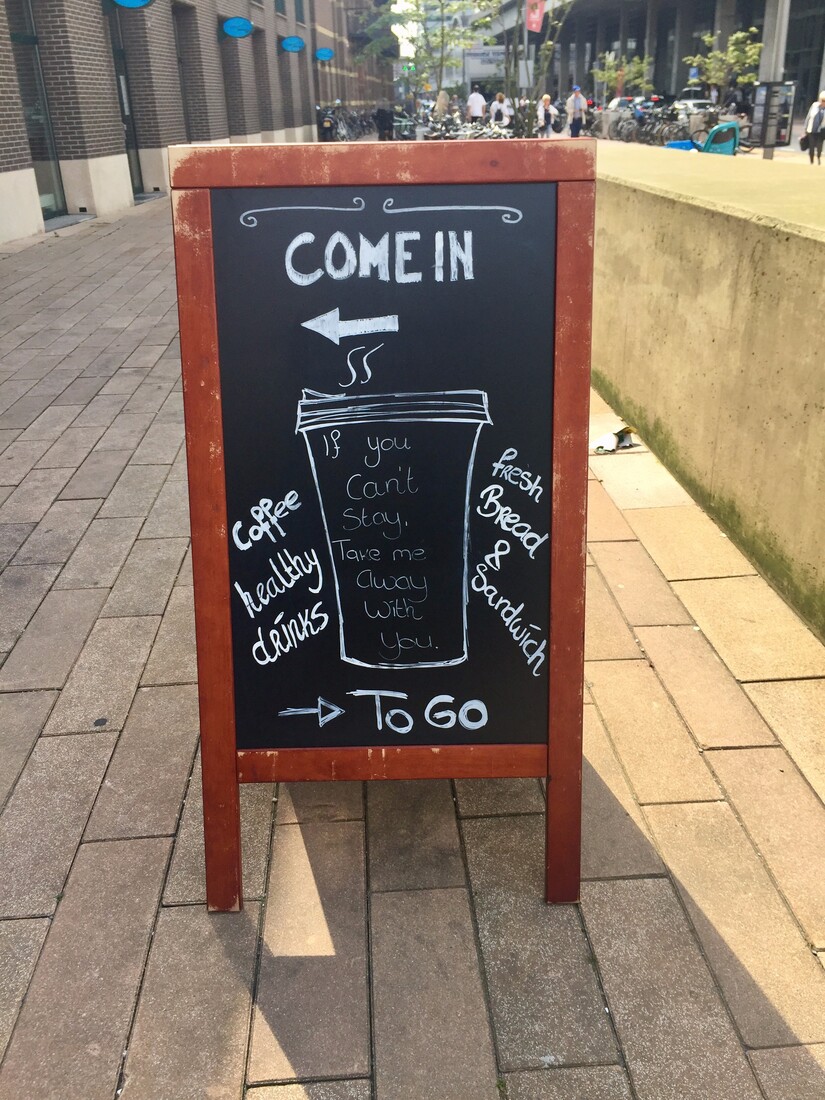 COME IN
If you
Can't
Stay.
Take me
away
With
You.
Coffee
healthy
drinks
fresh
Bread
&
Sandwich
To GO